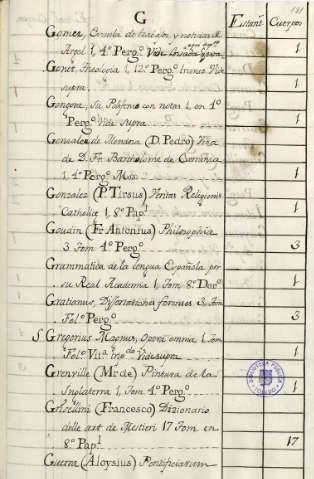 G
Estant.e Cuerpos
131
Gomez, de trabajos y noticias de
Argel 1, 4º Perg.º Vide 1
Genet, Theologia 1, 12º Perg.º trunca Vide
supra. 1
Gongora, Su Polifemo con notas 1, en 4º
Perg.º Vide Supra 1
Gonzalez de Mendoza (D. Pedro) Vida
de D. Fr. Bartholome de Carranza
1, 4º Perg.º 1
Gonzalez (P. Tirsus) Veritas Religionis
Catholicæ 1, 8º Pap.l 1
Goudin (Fr. Antonius) Philosophia
3 Tom 4º Perg.º 3
Grammatica de la lengua Española por
su Real Academia 1, Tom 8º 1
Gratianus, forenses 3 Tom
Fol.º Perg.º 3
S. Gregorius Magnus, Opera omnia 1, Tom
Fol.º Vit.a Vide supra 1
Grenville (Mr de) Pintura de la
Inglaterra 1, Tom 4º Perg.º 1
Griselini (Francesco) Dizionario
delle art de Mestieri 17 Tom en
8º Pap.l 17
Guerra (Aloysius) Pontificiarum
BIBLIOTECA PUBLICA